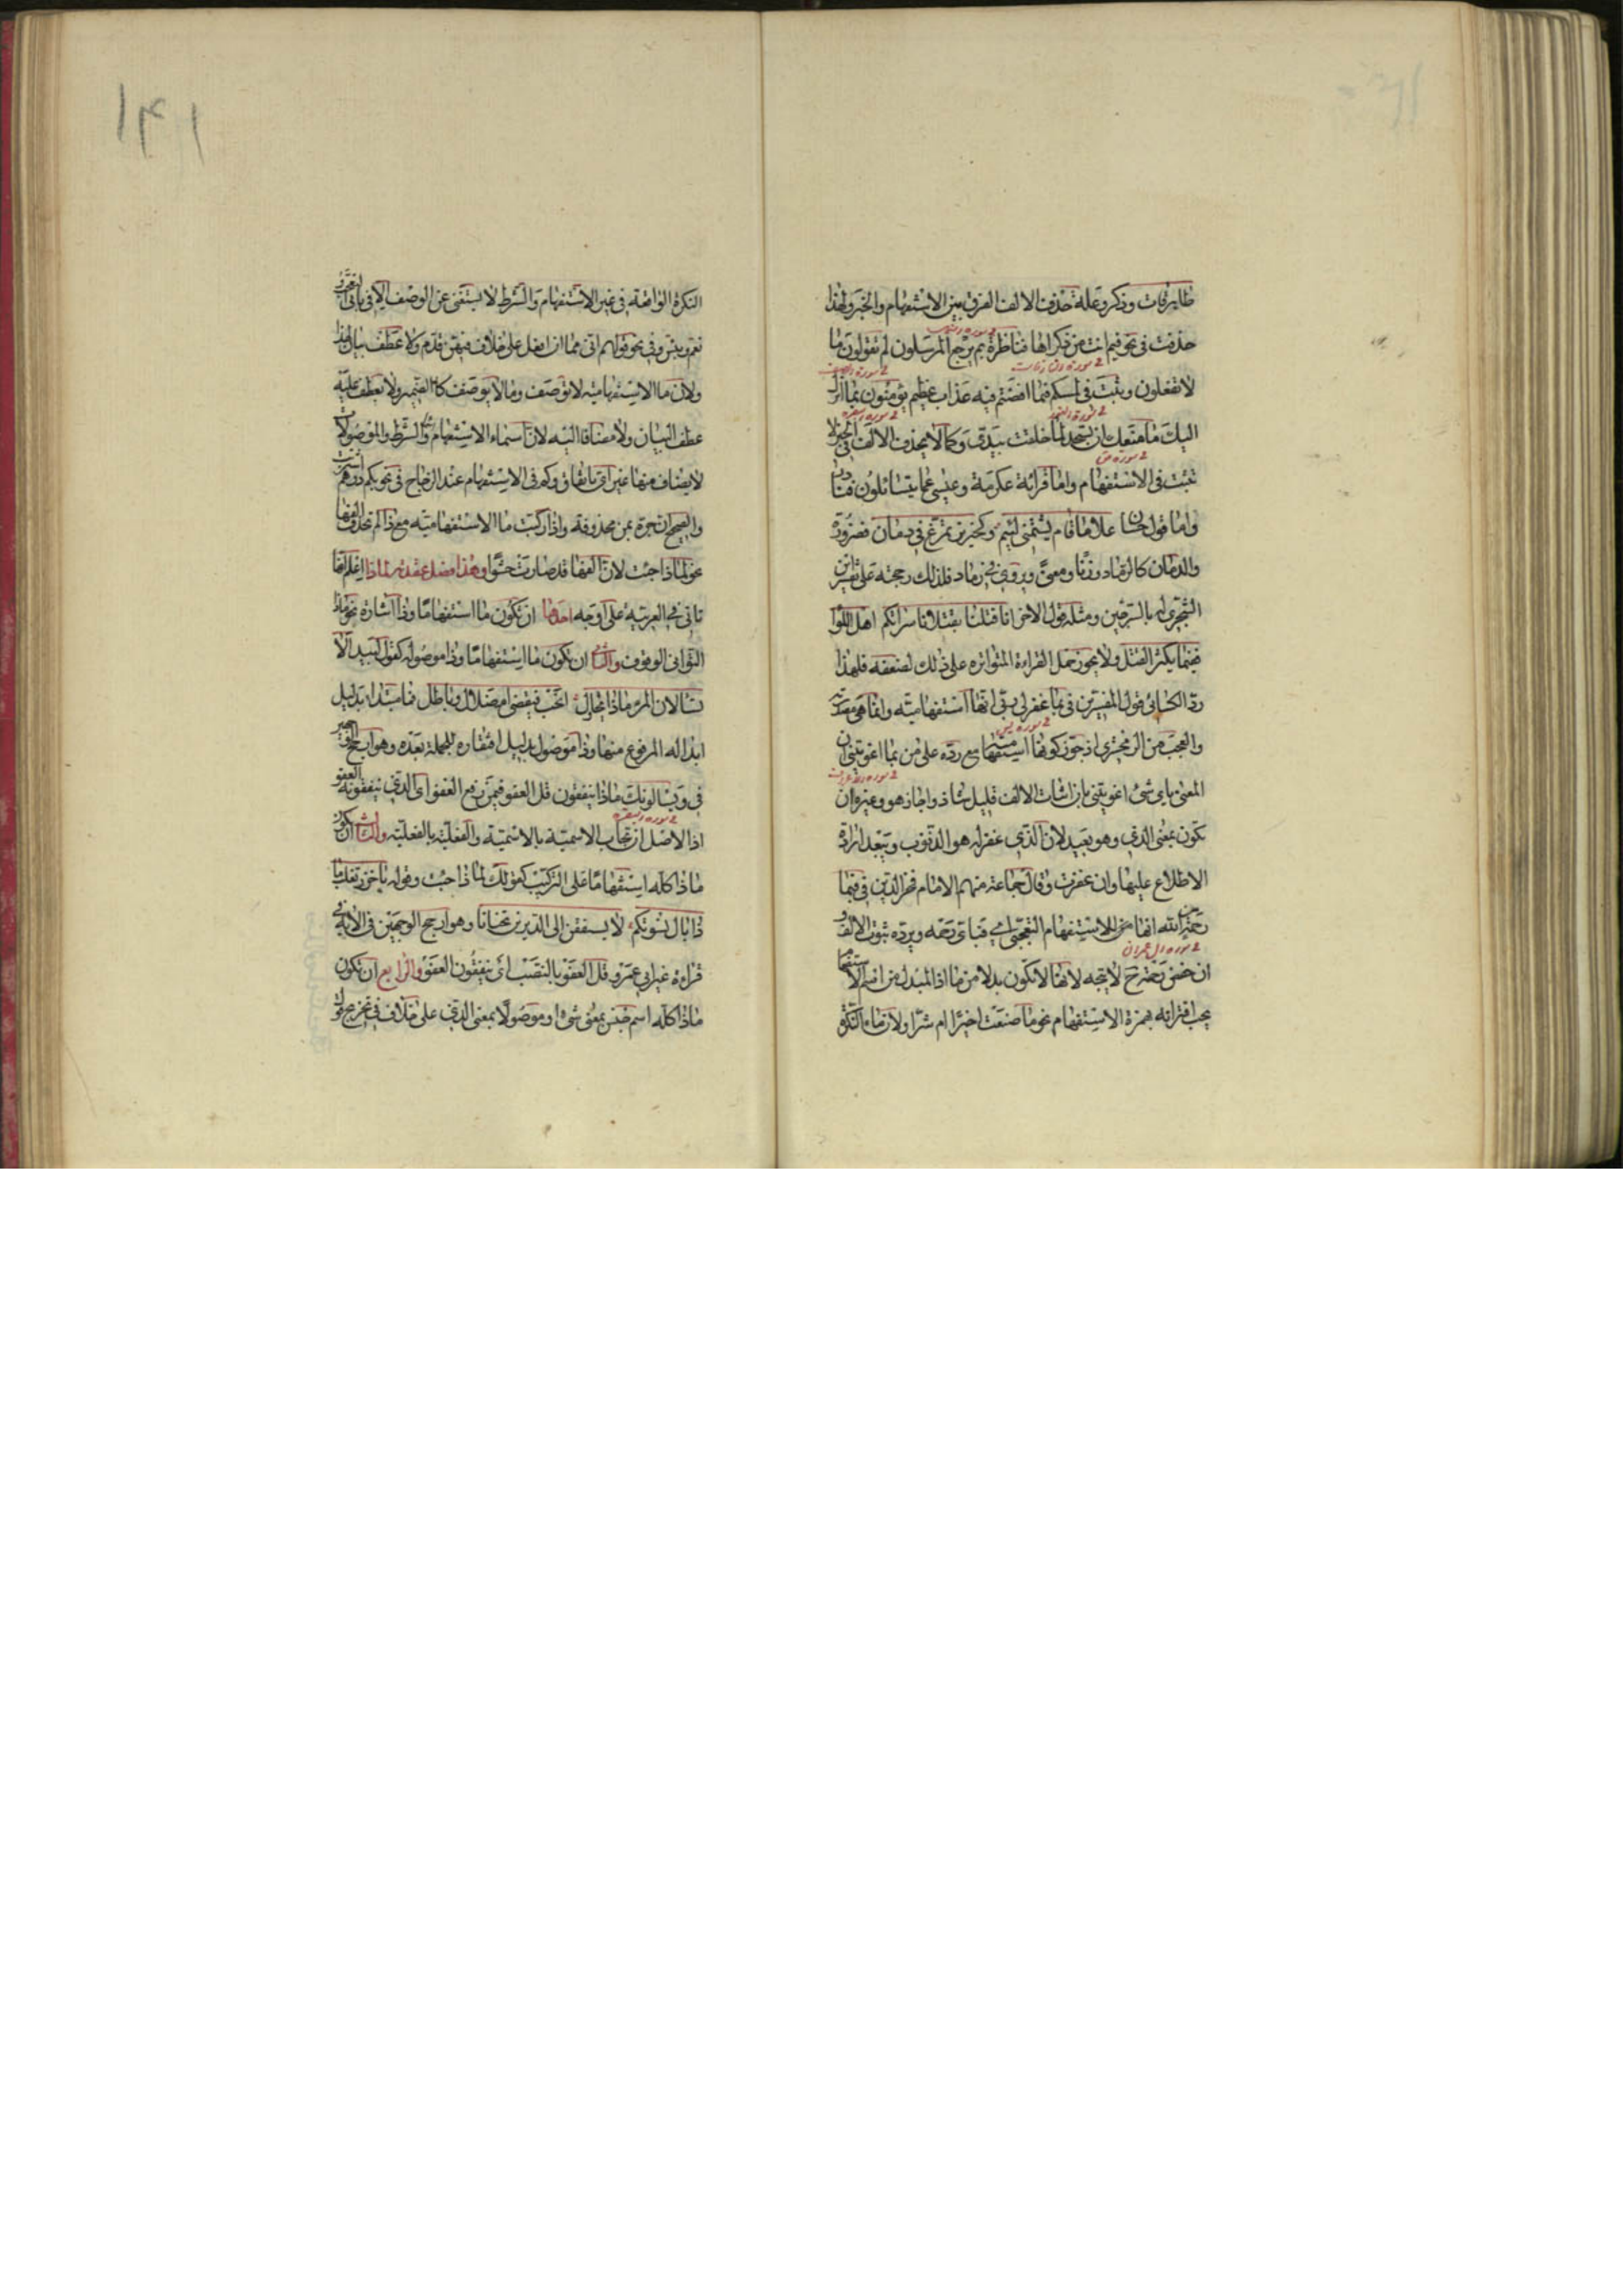 طارقات وذكر وعلة حذف الالف الفرق بين الاستفهام والخبر ولهذا
حذفت فى نحو فيم انت من ذكراها فناظرة بم يرجع المرسلون لم تقولون ما
لا تفعلون وثبتت فى لمسكم فيما افضتم فيه عذاب عظيم يؤمنون بما انزل
اليك ما منعك ان تسجد لما خلقت بيدى وكما لا يحذف الالف فى الخبر لا
تثبت فى الاستفهام واما قرائة عكرمة وعيسى عما يتسائلون فنادر
واما قول حسان علاما قام يشتمنى لئيم كخنزير تمرغ فى دمان فضرورة
والدمان كالرماد وزنا ومعنى ويروى فى رماد فلذلك رجحته على تفسير ابن
الشجرى له بالسرجين ومثله قول الاخر انا قتلنا بقتلانا سراتكم اهل اللوا
ففيما يكثر القتل ولا يجوز حمل القراءة المتواتره على ذلك لضعفه فلهذا
رد الكسائى قول المفسرين فى بما غفر لى ربى انها استفهامية وانما هى مصدرية
والعجب من الزمخشرى اذ جوز كونها استفهامية مع رده على من بما اغويتنى ان
المعنى باى شئ اغويتنى بان اثبات الالف قليل شاذ واجاز هو وغيره ان
تكون بمعنى الذى وهو بعيد لان الذى غفر له هو الذنوب ويبعد ارادة
الاطلاع عليها وان غفرت وقال جماعة منهم الامام فخر الدين فى فبما
رحمة من الله انها للاستفهام التعجبى اى فباى رحمة ويرده ثبوت الالف و
ان خفض رحمة ح لا يتجه لانها لا تكون بدلا من ما اذ المبدل من اسم الاستفهام
يجب اقترانه بهمزة الاستفهام نحو ما صنعت اخيرا ام شرا ولان ما النكرة
2 سوره النازعات
2 سورة ص
2 سوره يس
2 سوره ال عمران
النكرة الواقعة فى غير الاستفهام والشرط لا يستغنى عن الوصف الا فى بابى التعجب
نعم وبئس وفى نحو قولهم انى مما ان افعل على خلاف فيهن قد مر ولا عطف بيان لهذا
ولان ما الاستفهامية لا توصف وما لا يوصف كالضمير ولا يعطف عليه
عطف البيان ولا مضافا اليه لان اسماء الاستفهام والشرط والموصولات
لا يضاف منها غير اى باتفاق وكم فى الاستفهام عند الزجاج فى نحو بكم درهم اشتريت
والصحيح ان جره بمن محذوفة واذا ركبت ما الاستفهامية مع ذا لم تحذف الفها
نحو لماذا جئت لان الفها قد صارت حشوا وهذا فصل عقدته لماذا اعلم انها
تاتى فى العربية على اوجه احدها ان تكون ما استفهاما وذا اشارة نحو ماذا
التوانى الوقوف والثانى ان تكون ما استفهاما وذا موصوله كقول لبيد الا
تسالان المرء ماذا يحاول انحب فيقضى ام ضلال وباطل فما مبتداء بدليل
ابداله المرفوع منها وذا موصول بدليل افتقاره للجملة بعده وهو ارجح الوجهين
فى ويسالونك ماذا ينفقون قل العفو فيمن رفع العفو اى الذى ينفقونه العفو
اذ الاصل ان تجاب الاسمية بالاسمية والفعلية بالفعلية والثالث ان تكون
ماذا كله استفهاما على التركيب كقولك لماذا جئت وقوله يا خزر تغلب ما
ذا بال نسوتكم لا يستفقن الى الديرين تحنانا وهو ارجح الوجهين فى الاية فى
قراءة غير ابى عمرو قل العفو بالنصب اى ينفقون العفو والرابع ان تكون
ماذا كله اسم جنس بمعنى شئ او موصولا بمعنى الذى على خلاف فى تخريج قول
2 سوره البقره